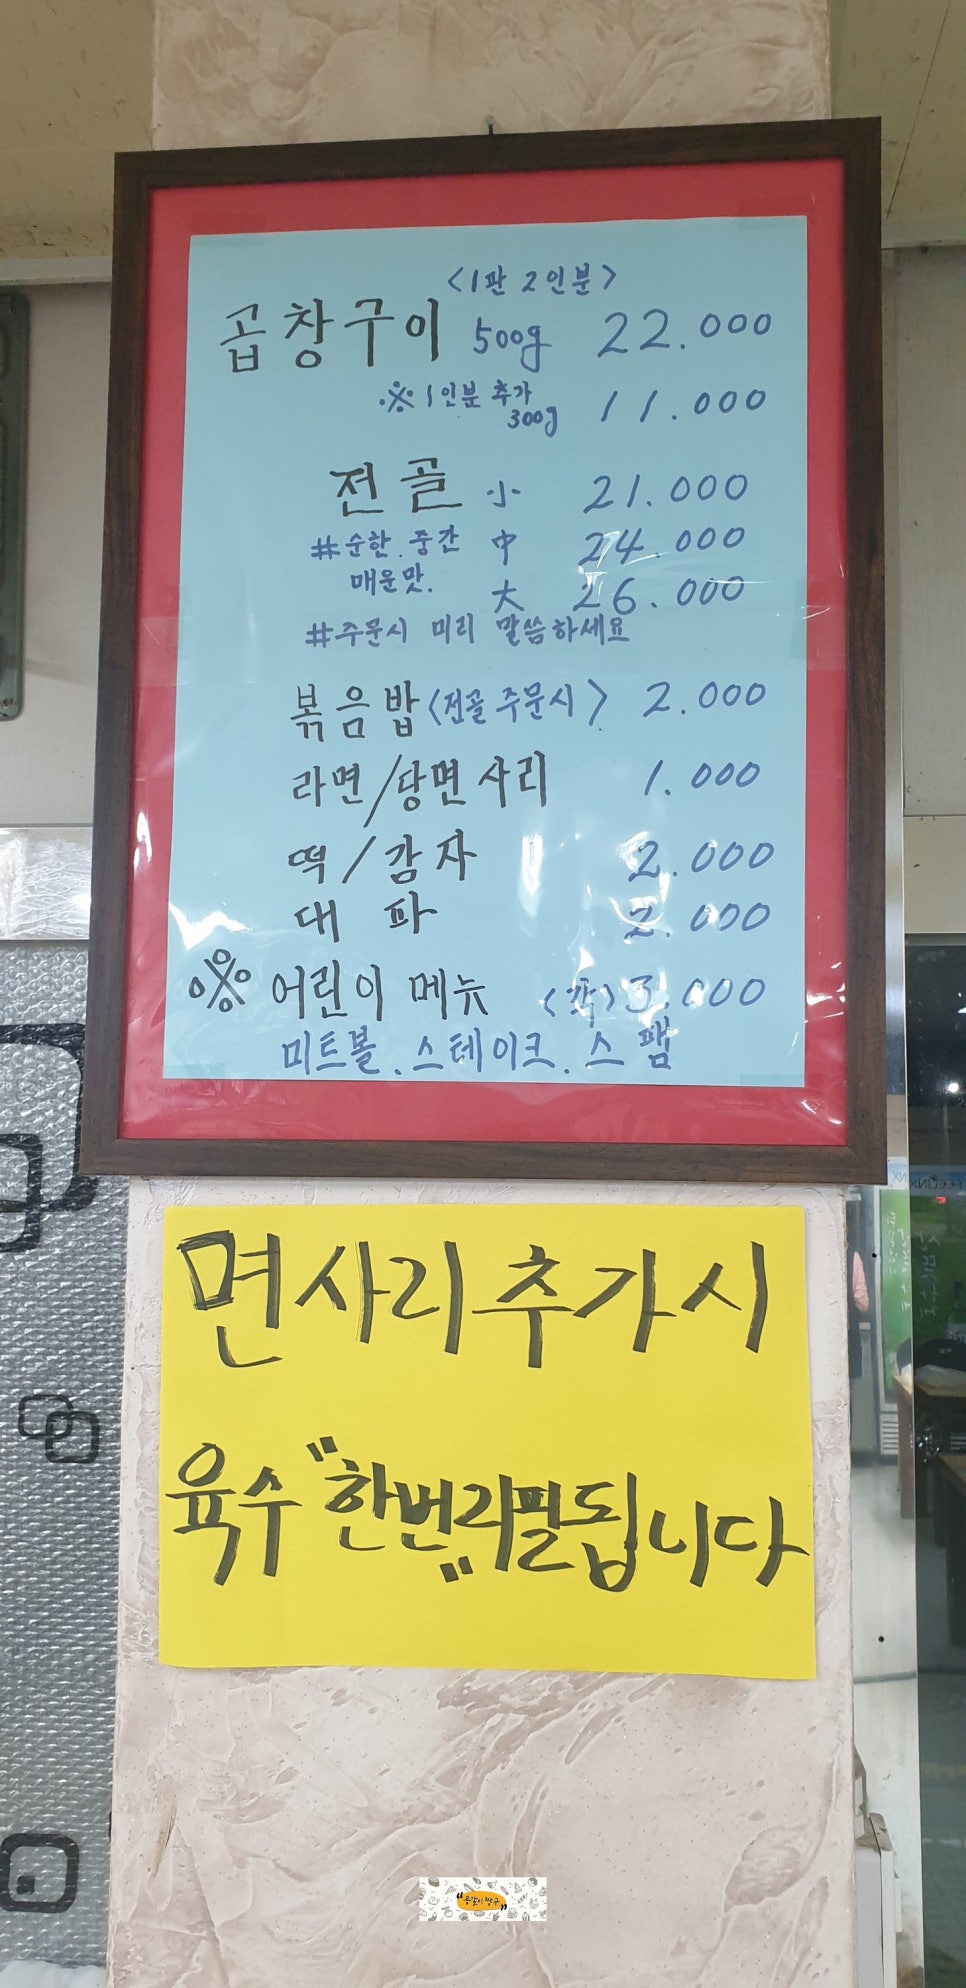 <1판 2인분>
곱창구이 500g 22.000
※1인분 추가 300g 11.000
전골 小 21.000
#순한.중간 中 24.000
매운맛. 大 26.000
#주문시 미리 말씀하세요
볶음밥<전골 주문시> 2.000
라면/당면사리 1.000
떡/감자 2.000
대파 2.000
※어린이 메뉴 <각>3.000
미트볼.스테이크.스팸
면사리추가시
육수 "한번"리필됩니다